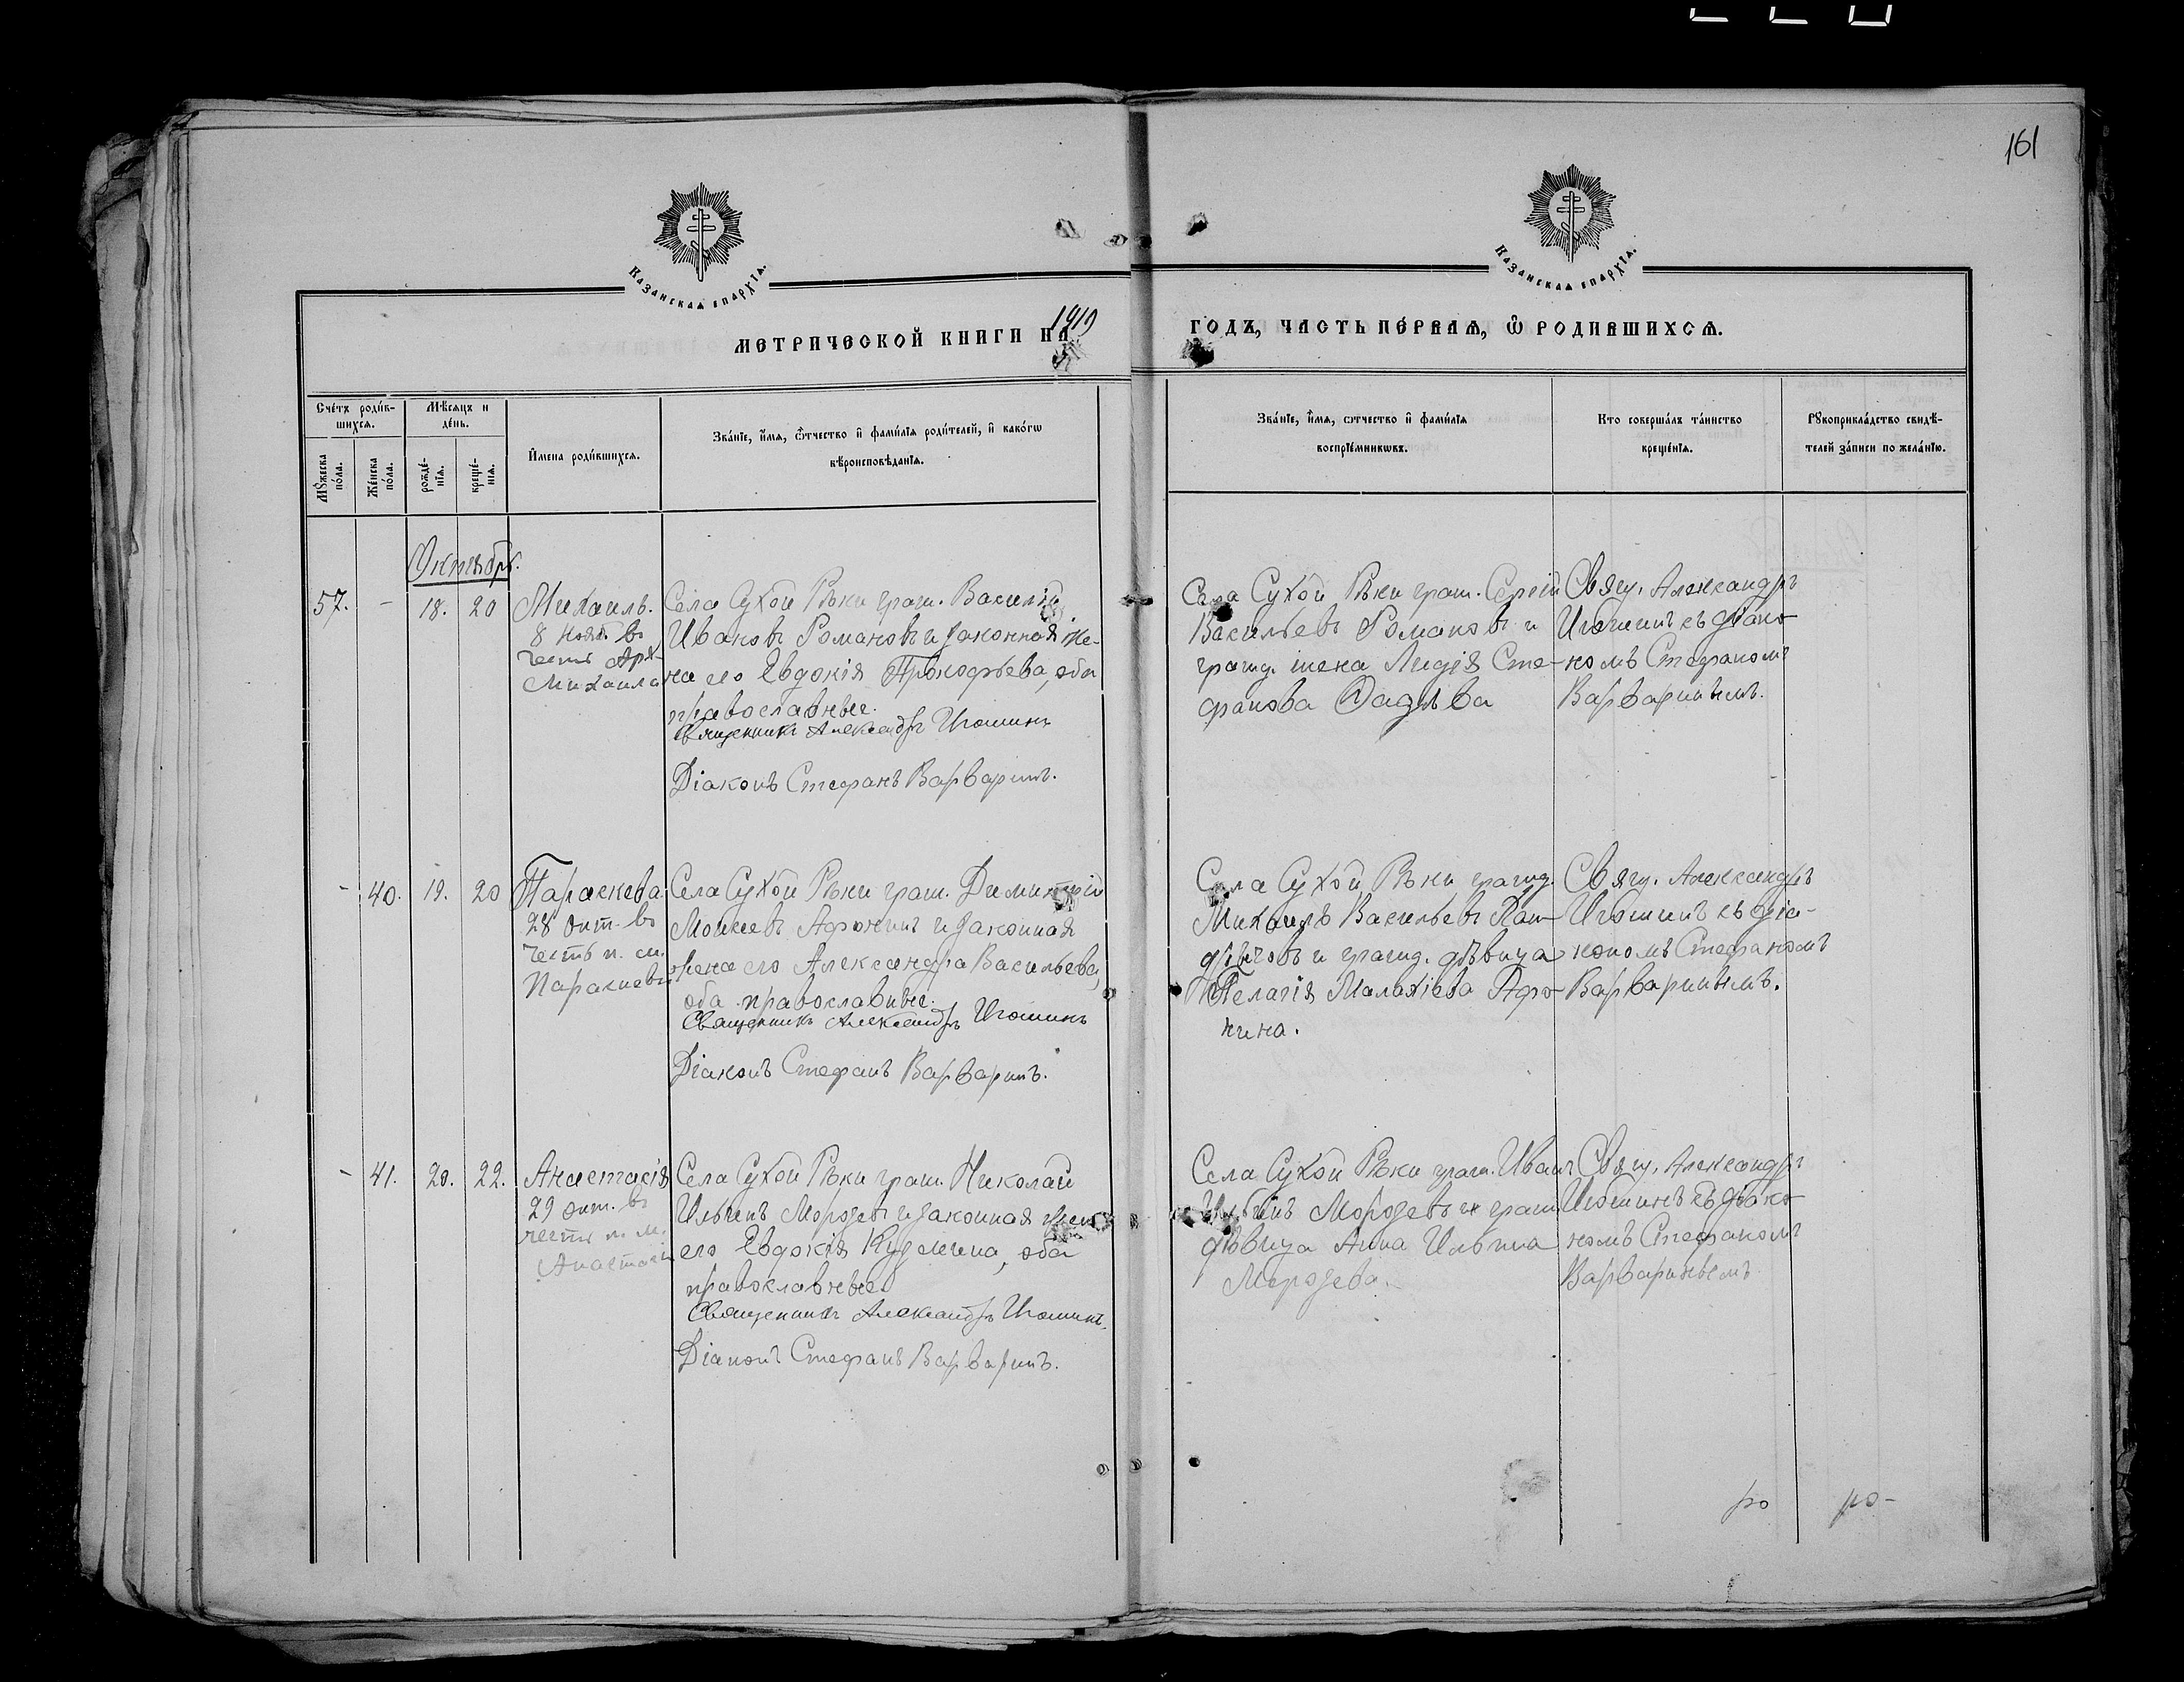 161
Казанская епархїѧ.
Казанская епархїѧ.
МЕТРИЧЕСКОЙ КНИГИ НА 1919
ГОДЪ, ЧАСТЬ ПЕ́РВАѦ, Ѡ҆ РОДИВШИХСѦ.
Сче́тъ роди́в-
шихсѧ.
Мꙋжеска
по́ла.
Же́нска
по́ла.
Мѣ́сѧцъ и
де́нь.
рожде́-
нїѧ.
креще́-
нїѧ.
И҆мена роди́вшихсѧ.
Зва́нїе, и҆́мѧ, ѻ҆́тчество и҆ фами́лїѧ роди́телей, и҆ како́гѡ
вѣроисповѣ́данїѧ.
Зва́нїе, и҆́мѧ, ѻ҆́тчество и҆ фами́лїѧ
воспрїе́мникѡвъ.
Кто соверша́лъ та́инство
креще́нїѧ.
Рꙋкоприкла́дство свидѣ́-
телей за́писи по жела́нїю.
Октябрь.
57. - 18. 20
Михаилъ.
8 нояб. въ
честь Арх.
Михаила
Села Сухой Рѣки граж. Василій
Ивановъ Романовъ и законная же-
на его Евдокія Прокофьева, оба
православные.
Священникъ Александръ Игошинъ
Діаконъ Стефанъ Варваринъ.
Села Сухой Рѣки граж. Сергій
Васильевъ Романовъ и
гражд. жена Лидія Сте-
фанова
Свящ. Александръ
Игошинъ съ діако-
номъ Стефаномъ
Варваринымъ.
- 40. 19. 20
Параскева.
28 окт. въ
честь п. м.
Параскевы
Села Сухой Рѣки граж. Димитрій
Моисеевъ Афонинъ и законная
жена его Александра Васильева,
оба православные.
Священникъ Александръ Игошинъ
Діаконъ Стефанъ Варваринъ.
Села Сухой Рѣки гражд.
Михаилъ Васильевъ Кан-
дрычовъ и гражд. дѣвица
Пелагія Малахіева Афо-
нина.
Свящ. Александръ
Игошинъ съ діа-
кономъ Стефаномъ
Варваринымъ.
- 41. 20. 22.
Анастасія
29 окт. въ
честь п. м.
Анастасіи
Села Сухой Рѣки граж. Николай
Ильинъ Морозевъ и законная жена
его Евдокія Кузмина, оба
православные
Священникъ Александръ Игошинъ.
Діаконъ Стефанъ Варваринъ.
Села Сухой Рѣки граж. Иванъ
Ильинъ Морозевъ и граж.
дѣвица Анна Ильина
Морозева.
Свящ. Александръ
Игошинъ съ діако-
номъ Стефаномъ
Варваринымъ